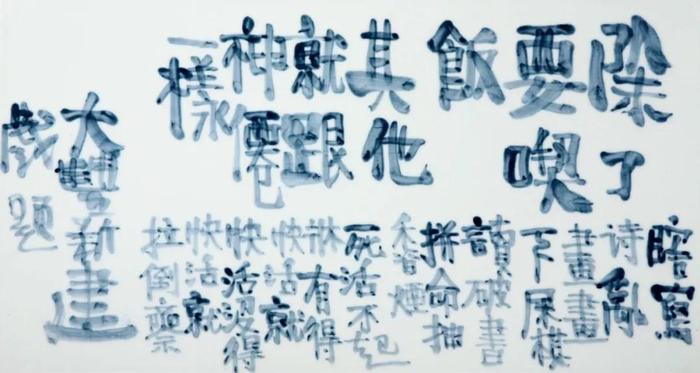 除了
要喫
飯
其他
就跟
神僊
一樣
瞎寫
诗亂
畫畫
下屎棋
讀破書
拼命抽
香煙
死活不起
牀有得
快活就
快活沒得
快活就
拉倒
大豐新建
戲題